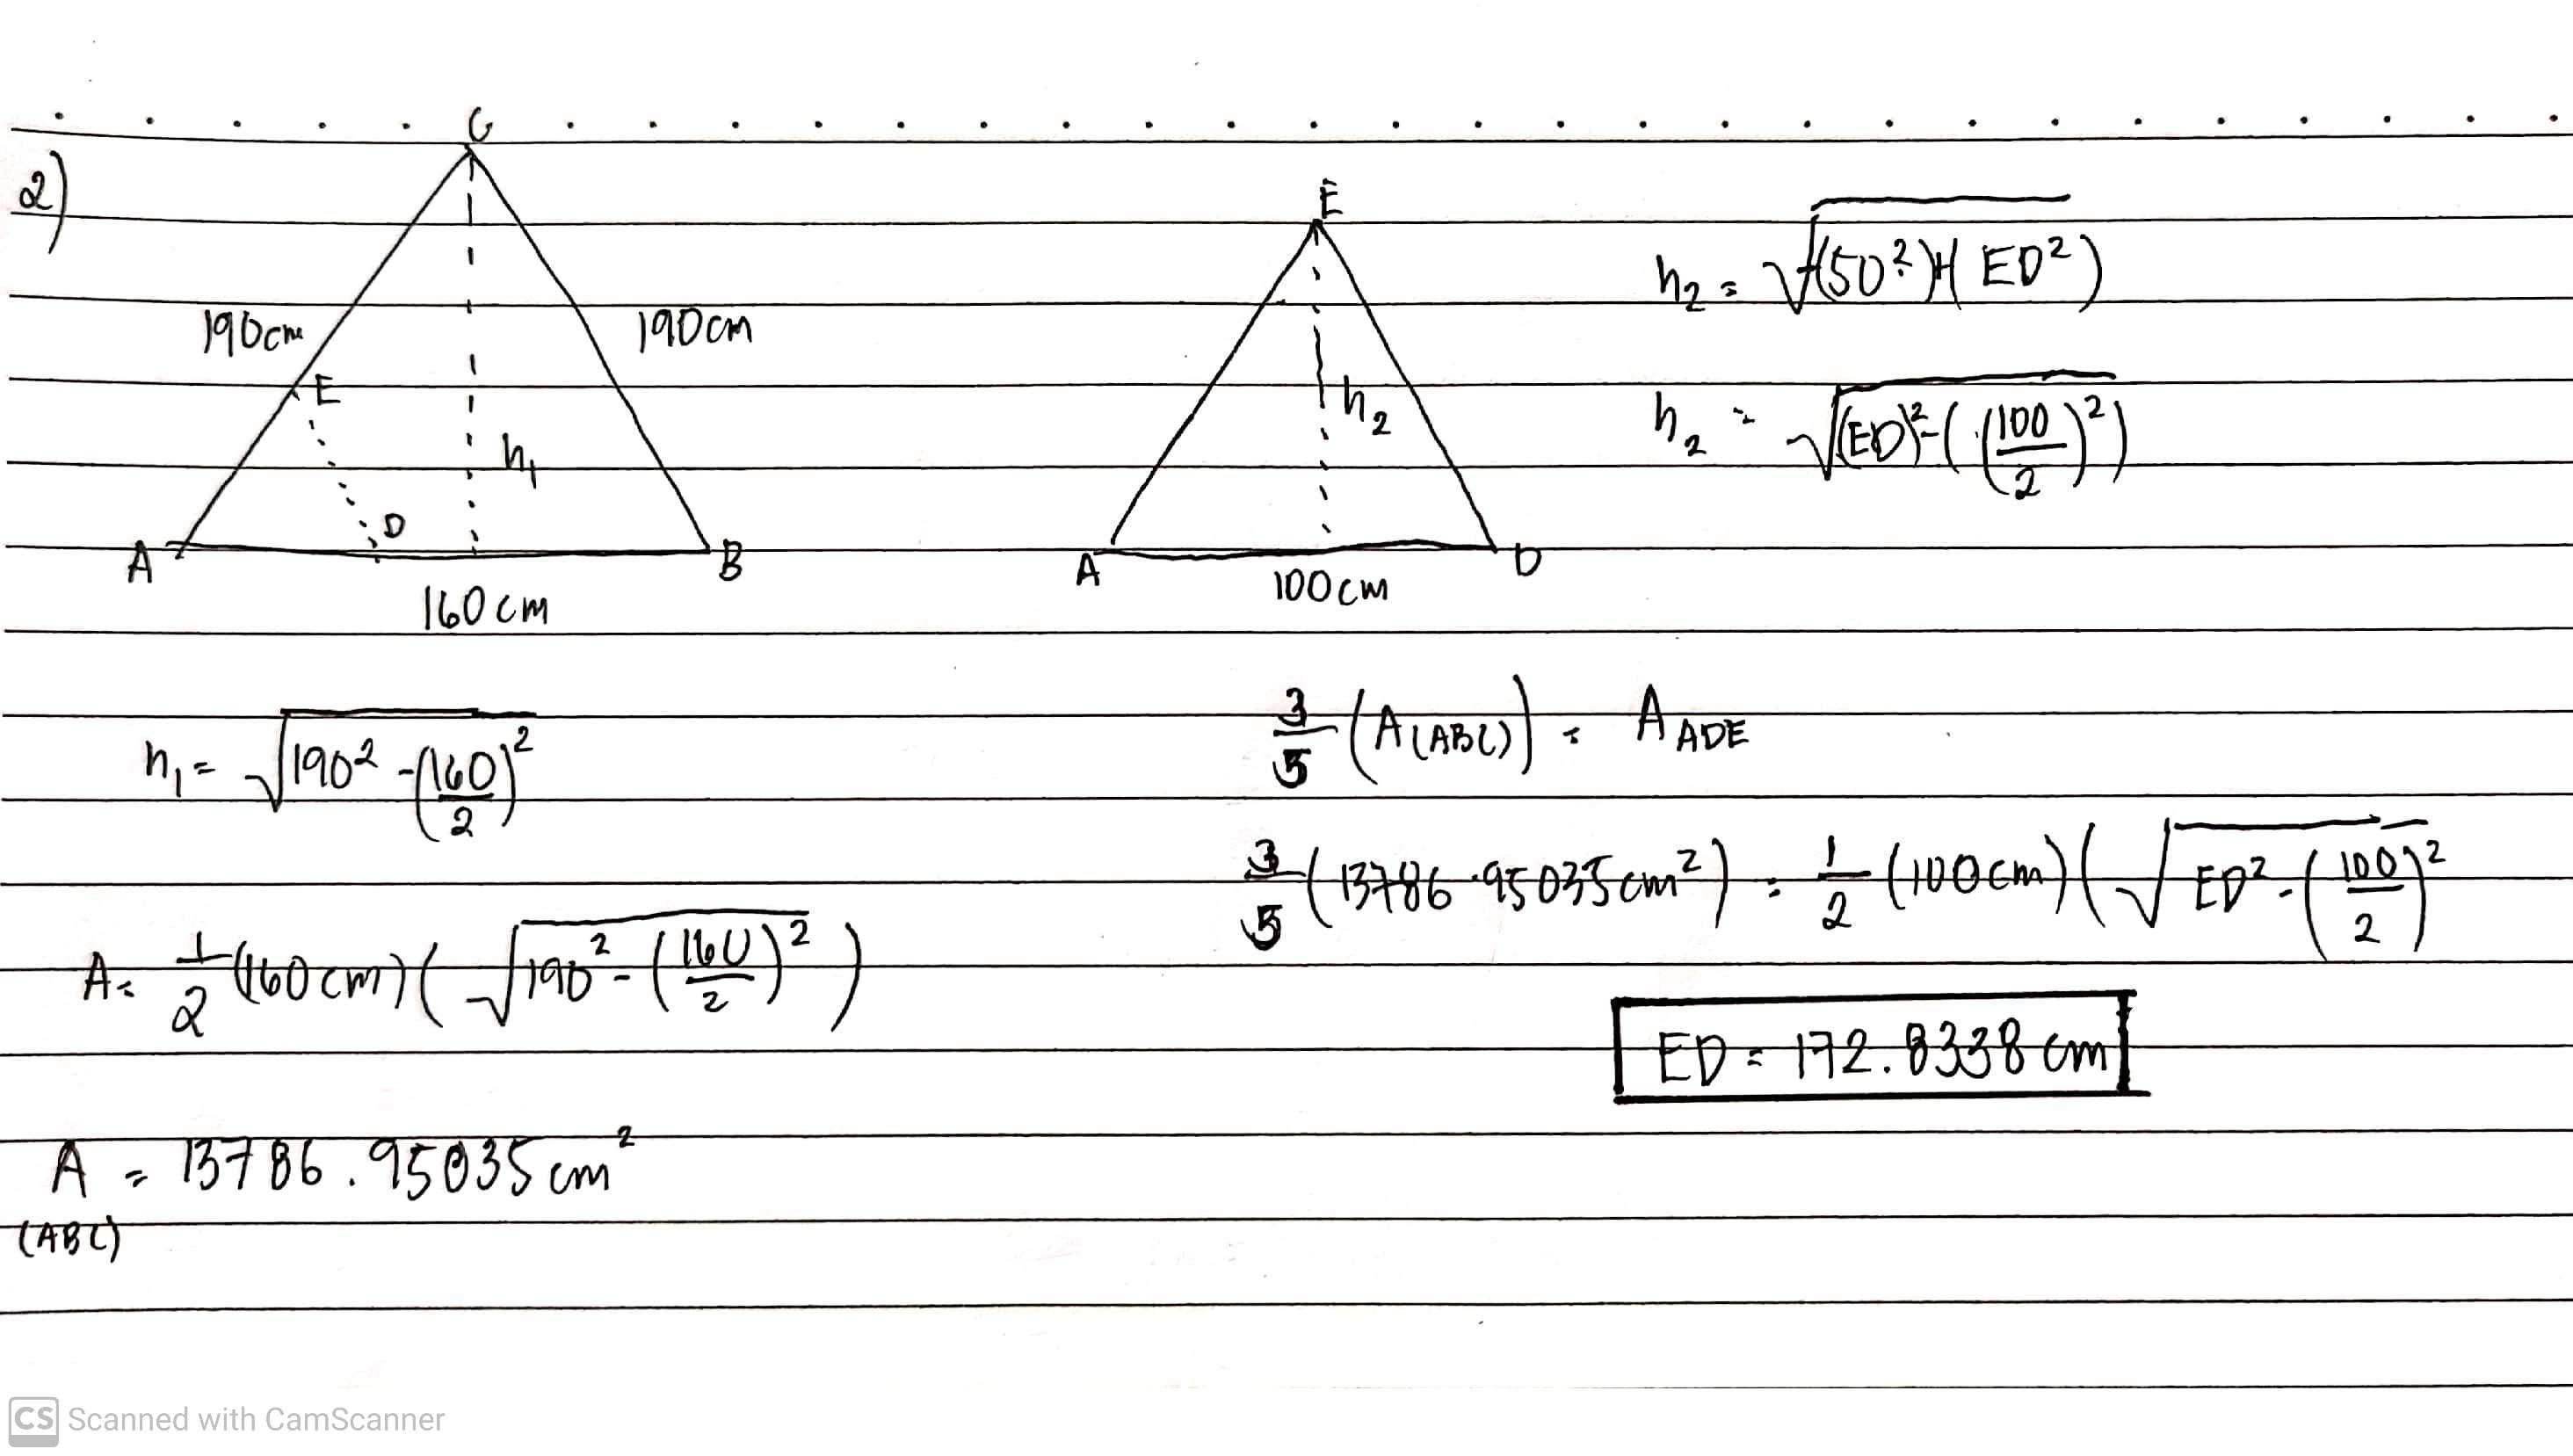 2)
C
190cm
190cm
E
h₁
D
A
B
160cm
E
h₂
A
D
100cm
h₂ = √(50²)+(ED²)
h₂ = √(ED)²-((100/2)²)
h₁ = √190² - (160/2)²
A = 1/2 (160cm) (√190² - (160/2)²)
A = 13786.95035cm²
(ABC)
3/5 (A(ABC)) = A ADE
3/5 (13786.95035cm²) = 1/2 (100cm) (√ED² - (100/2)²
ED = 172.8338cm
CS Scanned with CamScanner